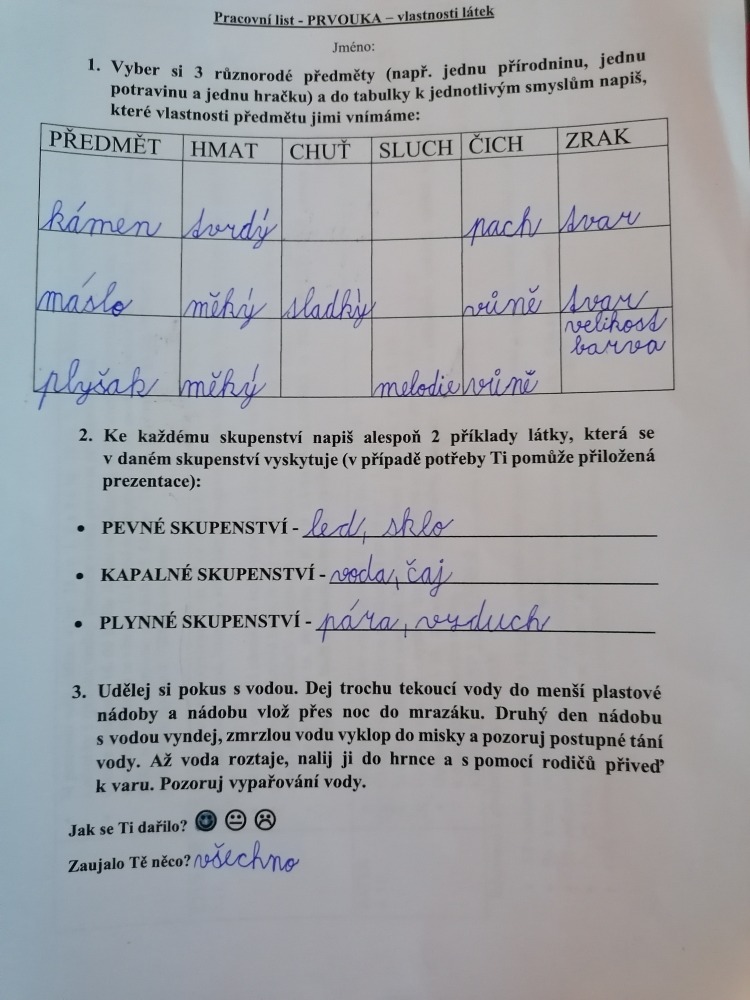 Pracovní list - PRVOUKA – vlastnosti látek
Jméno:
1. Vyber si 3 různorodé předměty (např. jednu přírodninu, jednu
potravinu a jednu hračku) a do tabulky k jednotlivým smyslům napiš,
které vlastnosti předmětu jimi vnímáme:
PŘEDMĚT HMAT CHUŤ SLUCH ČICH ZRAK
kámen tvrdý pach tvar
máslo měký sladký vůně tvar
velikost
barva
plyšak měký melodie vůně
2. Ke každému skupenství napiš alespoň 2 příklady látky, která se
v daném skupenství vyskytuje (v případě potřeby Ti pomůže přiložená
prezentace):
• PEVNÉ SKUPENSTVÍ - led, sklo
• KAPALNÉ SKUPENSTVÍ - voda, čaj
• PLYNNÉ SKUPENSTVÍ - pára, vzduch
3. Udělej si pokus s vodou. Dej trochu tekoucí vody do menší plastové
nádoby a nádobu vlož přes noc do mrazáku. Druhý den nádobu
s vodou vyndej, zmrzlou vodu vyklop do misky a pozoruj postupné tání
vody. Až voda roztaje, nalij ji do hrnce a s pomocí rodičů přiveď
k varu. Pozoruj vypařování vody.
Jak se Ti dařilo? ☺ 😐 ☹
Zaujalo Tě něco? všechno